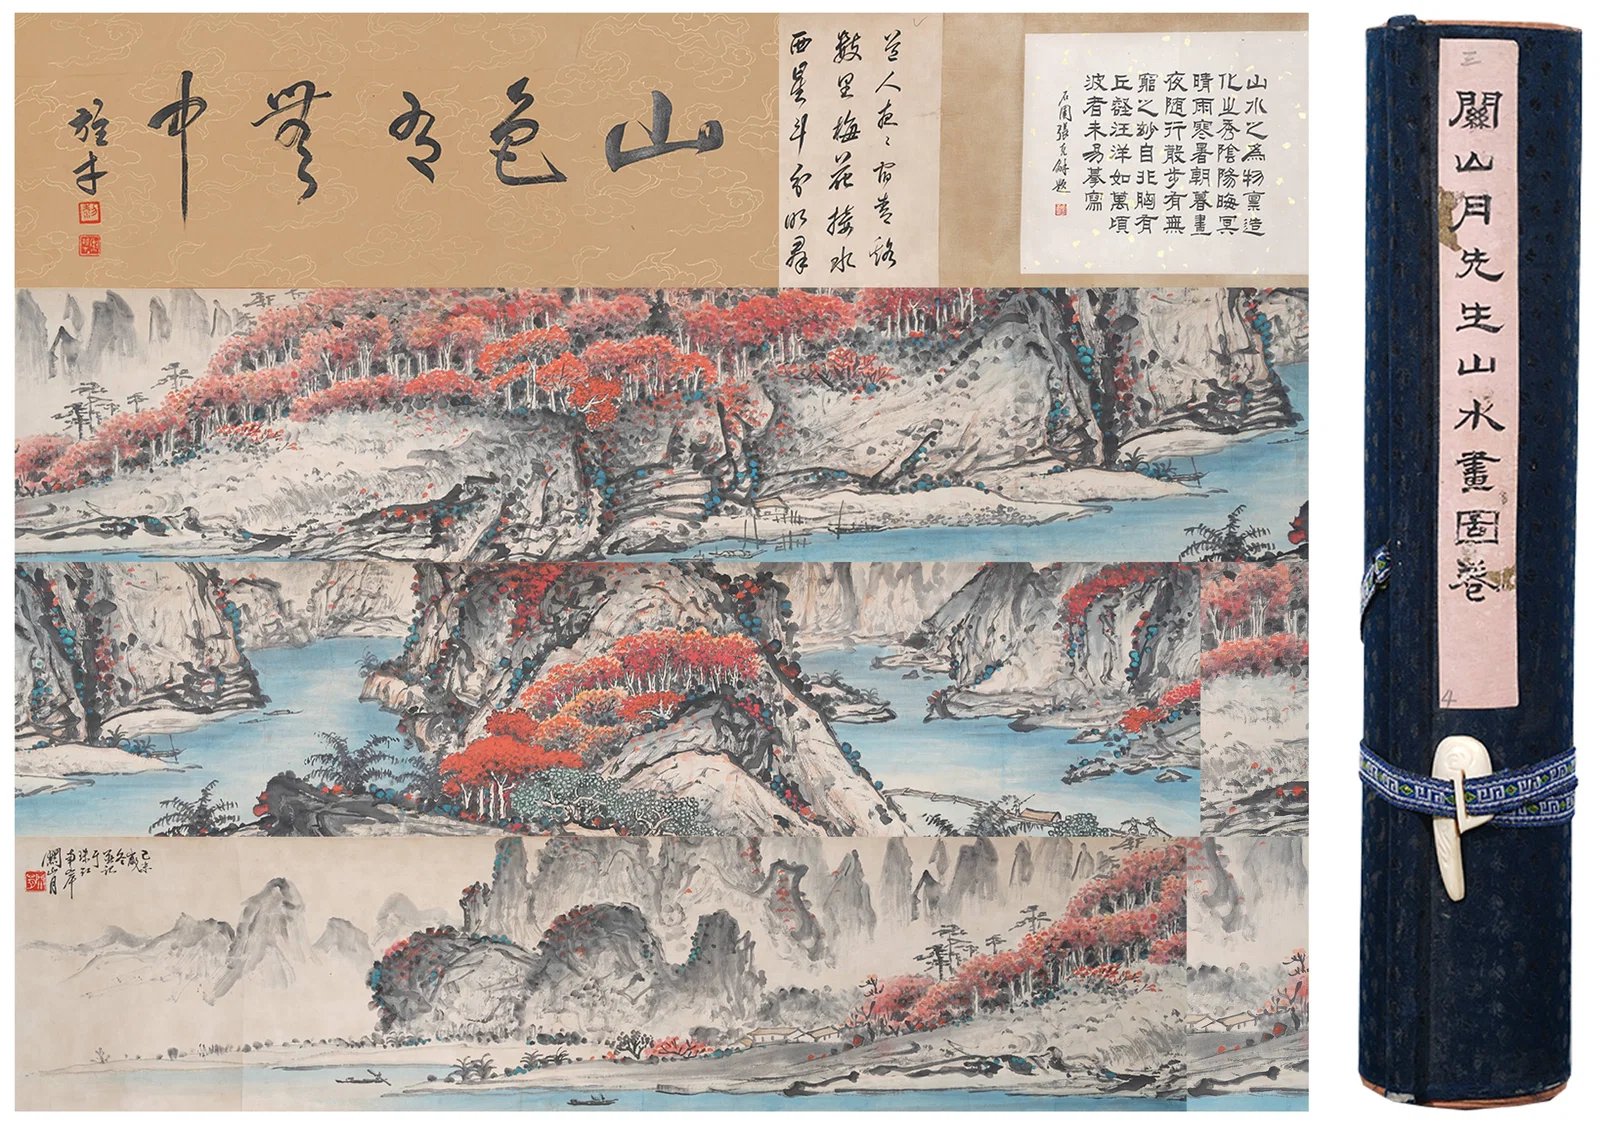 山水之為物稟造
化之秀陰陽晦冥
晴雨寒暑朝暮晝
夜隨行散步有無
窮之妙自非胸有
丘壑汪洋如萬頃
波者未易摹寫
石園張克龢題
道人夜〻宿青谿
數里梅花接水
西星斗分明群
山色有無中
己未
歲
冬
並記
于
珠江
南岸
關山月
三
關山月先生山水畫圖卷
4